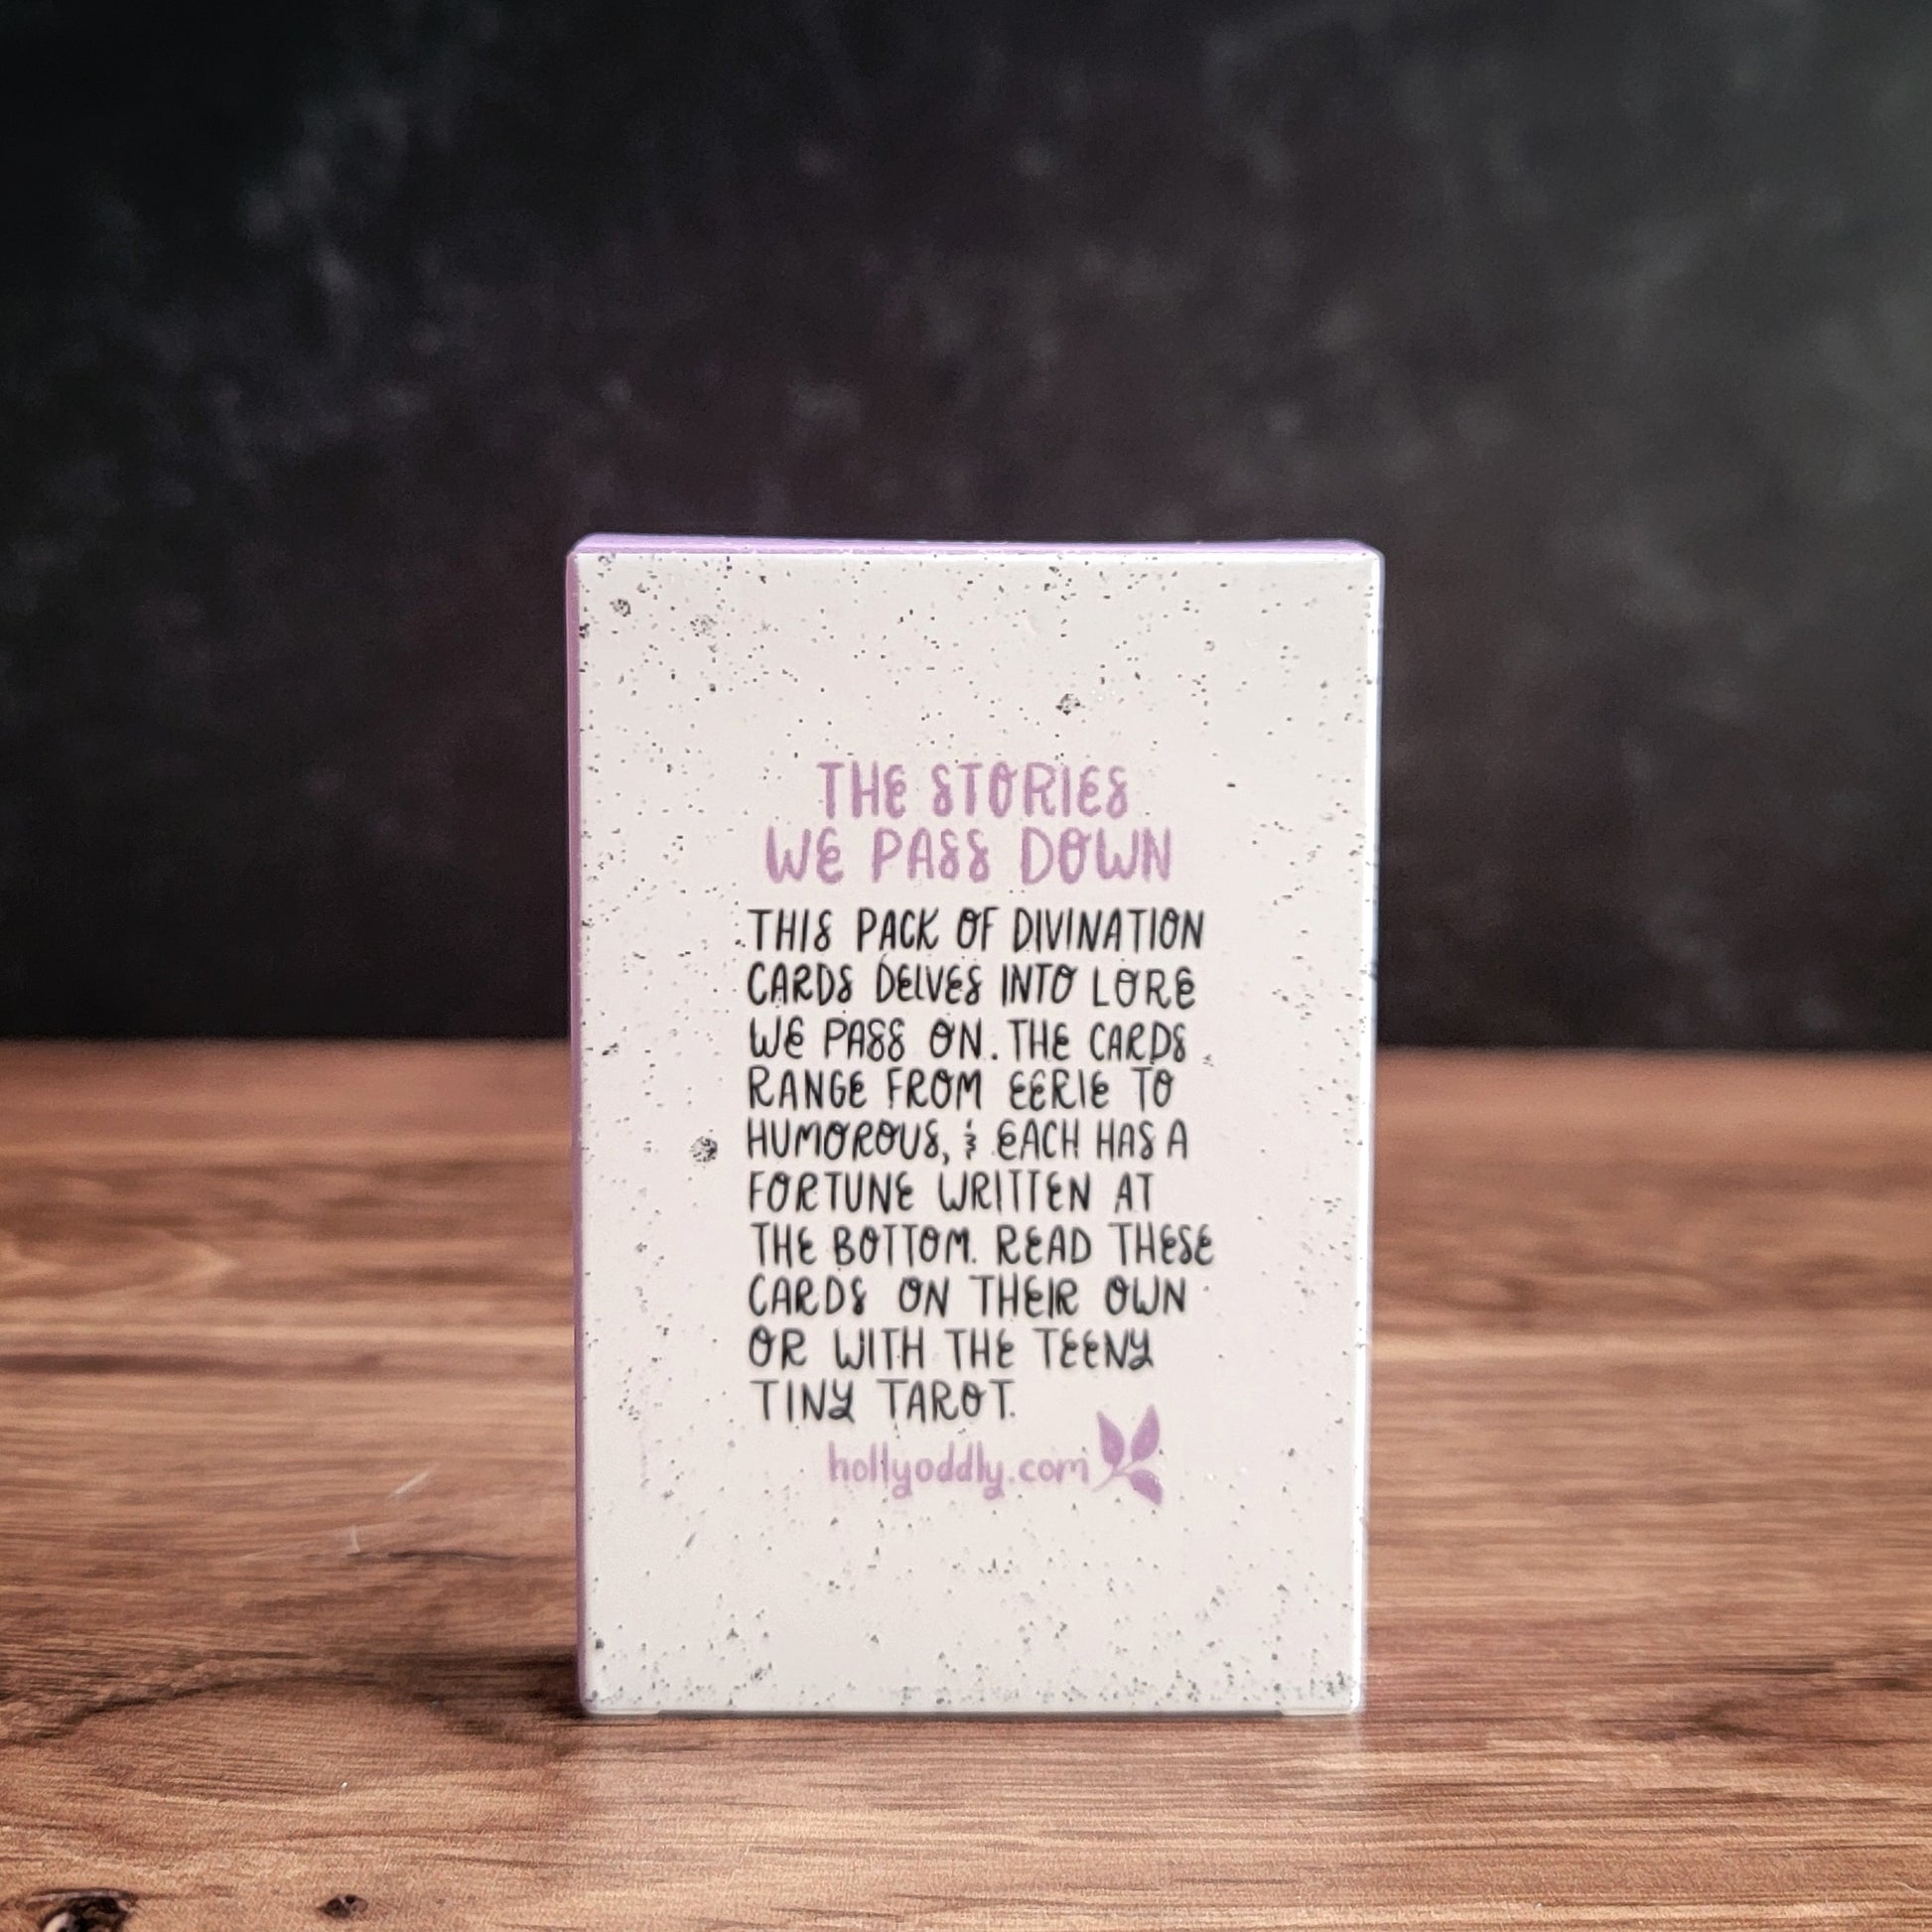 THE STORIES
WE PASS DOWN
THIS PACK OF DIVINATION
CARDS DELVES INTO LORE
WE PASS ON. THE CARDS
RANGE FROM EERIE TO
HUMOROUS, & EACH HAS A
FORTUNE WRITTEN AT
THE BOTTOM. READ THESE
CARDS ON THEIR OWN
OR WITH THE TEENY
TINY TAROT.
hollyoddly.com